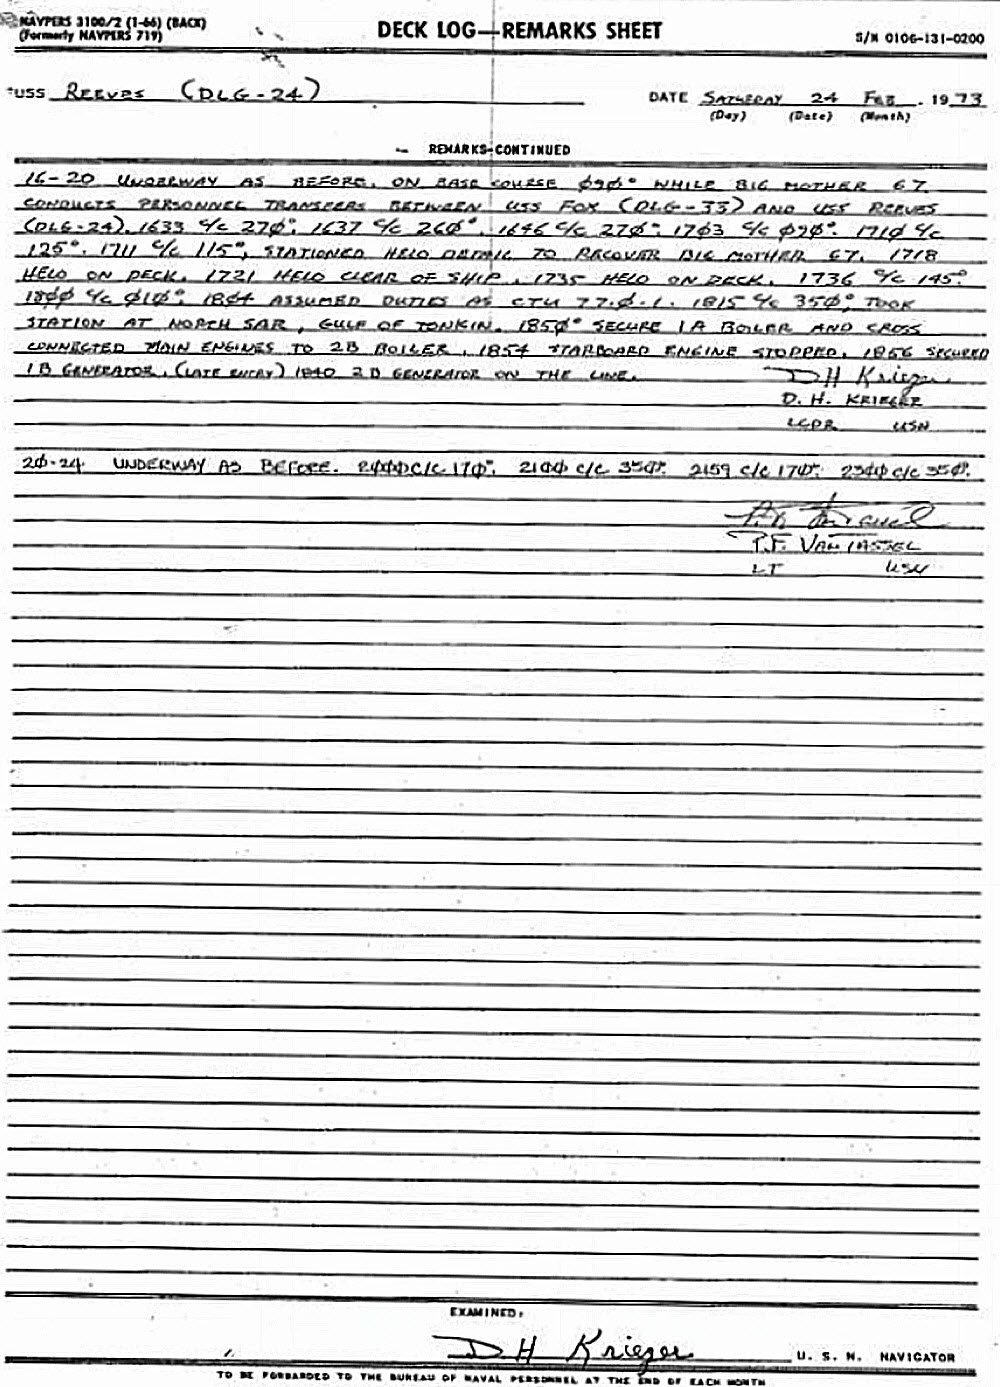 NAVPERS 3100/2 (1-66) (BACK)
(Formerly NAVPERS 719)
DECK LOG—REMARKS SHEET
S/N 0106-131-0200
USS REEVES (DLG-24)
DATE SATURDAY 24 FEB. 1973
(Day) (Date) (Month)
REMARKS-CONTINUED
16-20 UNDERWAY AS BEFORE, ON BASE COURSE Ø9Ø° WHILE BIG MOTHER 67
CONDUCTS PERSONNEL TRANSFERS BETWEEN USS FOX (DLG-33) AND USS REEVES
(DLG-24). 1633 C/C 27Ø°. 1637 C/C 26Ø°. 1646 C/C 27Ø°. 17Ø3 C/C Ø9Ø°. 171Ø C/C
125°. 1711 C/C 115°, STATIONED HELO DETAIL TO RECOVER BIG MOTHER 67. 1718
HELO ON DECK. 1721 HELO CLEAR OF SHIP. 1735 HELO ON DECK. 1736 C/C 145°.
18ØØ C/C Ø1Ø°. 18Ø4 ASSUMED DUTIES AS CTU 77.Ø.1. 1815 C/C 35Ø°, TOOK
STATION AT NORTH SAR, GULF OF TONKIN. 185Ø° SECURE 1A BOILER AND CROSS
CONNECTED MAIN ENGINES TO 2B BOILER. 1854 STARBOARD ENGINE STOPPED. 1856 SECURED
1B GENERATOR. (LATE ENTRY) 1840 2B GENERATOR ON THE LINE.
D H Krieger
D. H. KRIEGER
LCDR USN
2Ø-24 UNDERWAY AS BEFORE. 2ØØØ C/C 17Ø°. 21ØØ C/C 35Ø°. 2159 C/C 17Ø°. 23ØØ C/C 35Ø°.
VAN TASSEL
LT USN
EXAMINED:
D H Krieger
U. S. N. NAVIGATOR
TO BE FORWARDED TO THE BUREAU OF NAVAL PERSONNEL AT THE END OF EACH MONTH